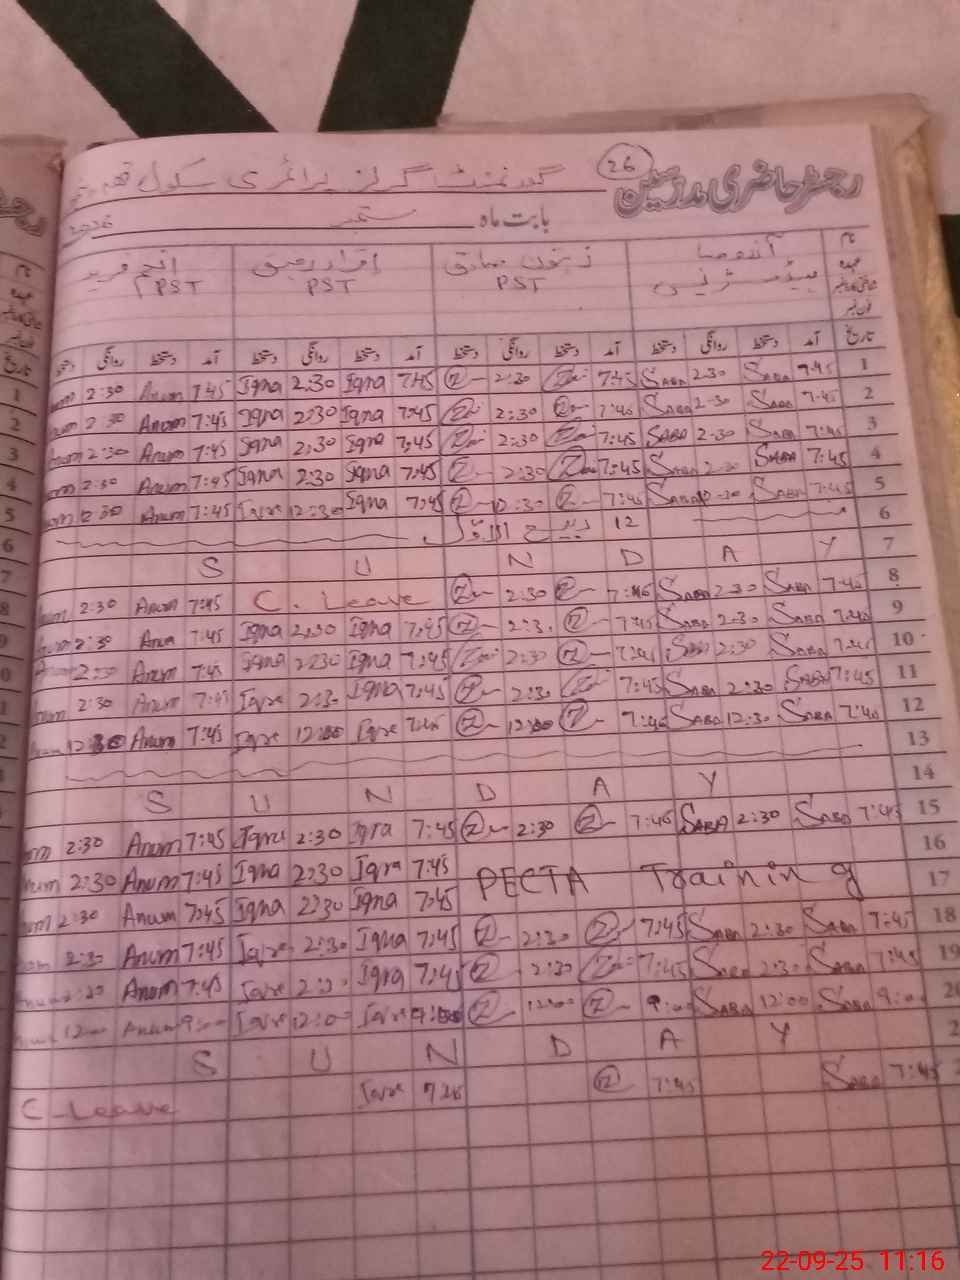 26
رجسٹر حاضری مدرسین
گورنمنٹ گرلز پرائمری سکول
بابت ماہ ستمبر
نام
عہدہ
آمنہ صبا
ہیڈ مسٹریس
زیتون صادق
PST
اقراء رفیق
PST
انعم فرید
PST
تاریخ آمد دستخط روانگی دستخط آمد دستخط روانگی دستخط آمد دستخط روانگی دستخط آمد دستخط روانگی
2:30 Anum 7:45 Iqra 2:30 Iqra 7:45 Z 2:30 Z 7:45 SABA 2:30 SABA 7:45 1
2:30 Anum 7:45 Iqra 2:30 Iqra 7:45 Z 2:30 Z 7:45 SABA 2:30 SABA 7:45 2
2:30 Anum 7:45 Iqra 2:30 Iqra 7:45 Z 2:30 Z 7:45 SABA 2:30 SABA 7:45 3
2:30 Anum 7:45 Iqra 2:30 Iqra 7:45 Z 2:30 Z 7:45 SABA 2:30 SABA 7:45 4
Anum 7:45 Iqra 12:30 Iqra 7:45 Z 12:30 Z 7:45 SABA SABA 7:45 5
12 ربیع الاول 6
S U N D A Y 7
2:30 Anum 7:45 C. Leave Z 2:30 Z 7:45 SABA 2:30 SABA 7:45 8
2:30 Anum 7:45 Iqra 2:30 Iqra 7:45 Z 2:30 Z 7:45 SABA 2:30 SABA 7:45 9
2:30 Anum 7:45 Iqra 2:30 Iqra 7:45 Z 2:30 Z 7:45 SABA 2:30 SABA 7:45 10
2:30 Anum 7:45 Iqra 2:30 Iqra 7:45 Z 2:30 Z 7:45 SABA 2:30 SABA 7:45 11
Anum 7:45 Iqra 12:00 Iqra 7:45 Z 12:00 Z 7:45 SABA 12:30 SABA 7:40 12
13
S U N D A Y 14
2:30 Anum 7:45 Iqra 2:30 Iqra 7:45 Z 2:30 Z 7:45 SABA 2:30 SABA 7:45 15
2:30 Anum 7:45 Iqra 2:30 Iqra 7:45 16
PECTA Training
2:30 Anum 7:45 Iqra 2:30 Iqra 7:45 17
2:30 Anum 7:45 Iqra 2:30 Iqra 7:45 Z 2:30 Z 7:45 SABA 2:30 SABA 7:45 18
Anum 7:45 Iqra 2:30 Iqra 7:45 Z 2:30 Z 7:45 SABA 2:30 SABA 7:45 19
12:00 Anum 9:00 Iqra 12:00 Iqra 9:00 Z 12:00 Z 9:00 SABA 12:00 SABA 9:00 20
S U N D A Y
C-Leave Iqra Z 7:45 SABA 7:45
22-09-25 11:16